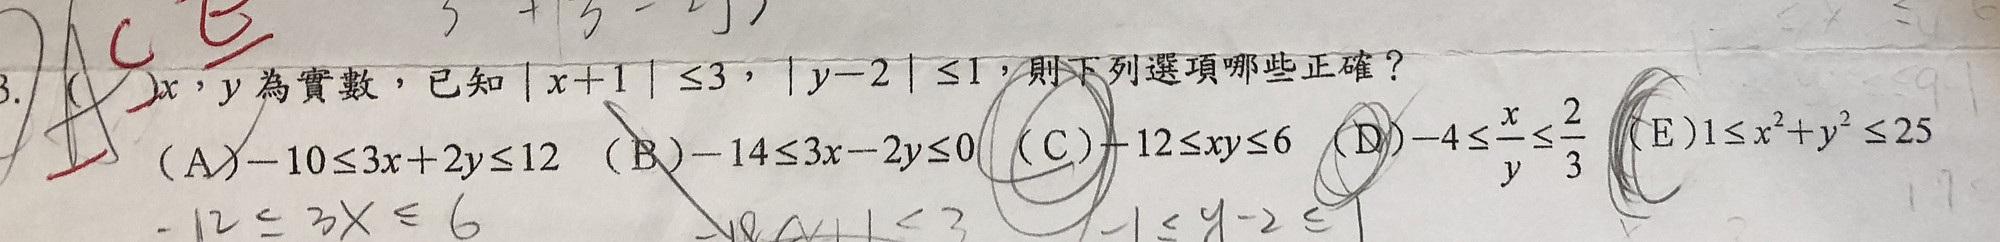 CE
3. ( )x，y 為實數，已知｜x+1｜≤3，｜y−2｜≤1，則下列選項哪些正確？
(A)−10≤3x+2y≤12 (B)−14≤3x−2y≤0 (C)−12≤xy≤6 (D)−4≤x/y≤2/3 (E)1≤x²+y²≤25
-12 ≤ 3x ≤ 6 -1 ≤ y-2 ≤ 1